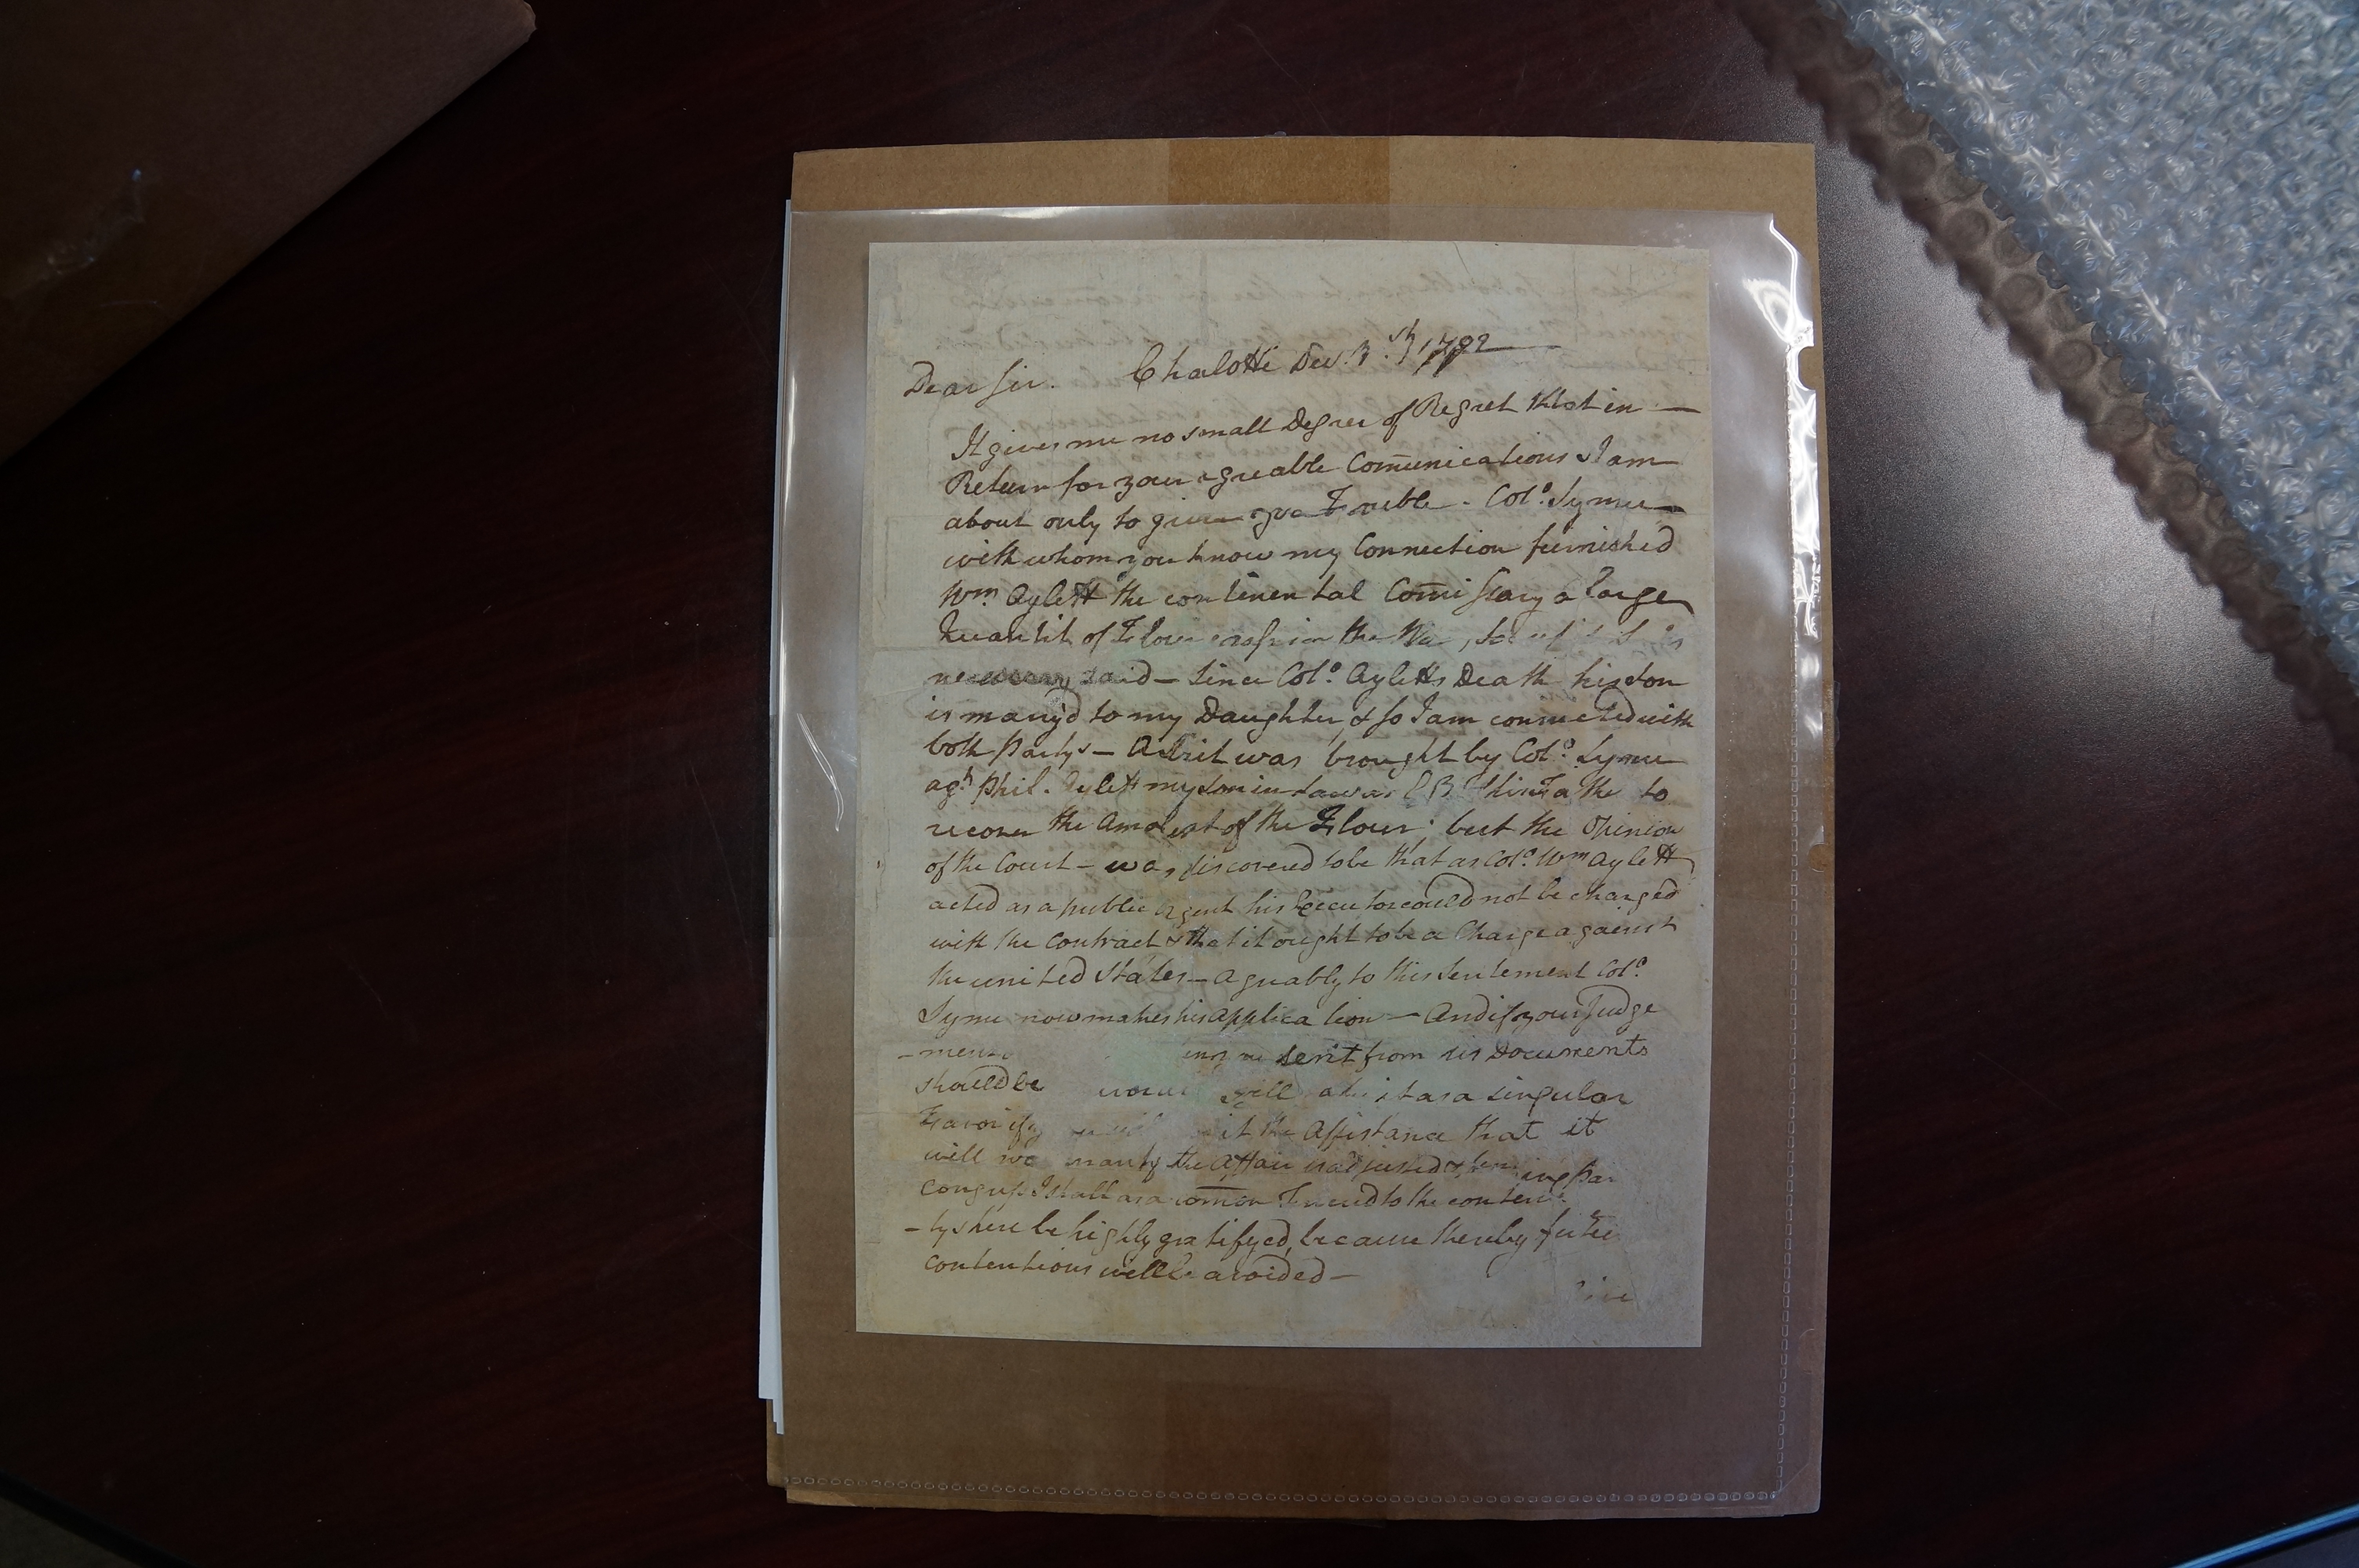 Dear Sir. Charlotte Dec. 1792
It gives me no small Degree of Regret that in —
Return for your agreable Com̄unications I am
about only to give you Trouble. Colo. Syme —
with whom you know my Connection furnished
Wm. Aylett the continental Com̄issary a large
Quantit of Flour in the
necessary said — Since Colo. Ayletts Death his Son
is marry'd to my Daughter, & so I am connected with
both Partys — A Suit was brought by Colo. Syme
agt. Phil. Aylett my Son in Law as his Father to
recover the Amount of the Flour; but the Opinion
of the Court — was discovered to be that as Colo. Wm Aylett
acted as a public Agent his Executor could not be charged
with the Contract & that it ought to be a Charge against
the united States — Agreably to this Sentement Colo.
Syme now makes his Application — And if your Judge
-ment sent from his Documents
should be it as a singular
Favor if the Assistance that it
will the Affair is adjusted
Congress I shall as a com̄on Friend to the conten
-tys here be highly gratifyed, because thereby
contentions will be avoided —